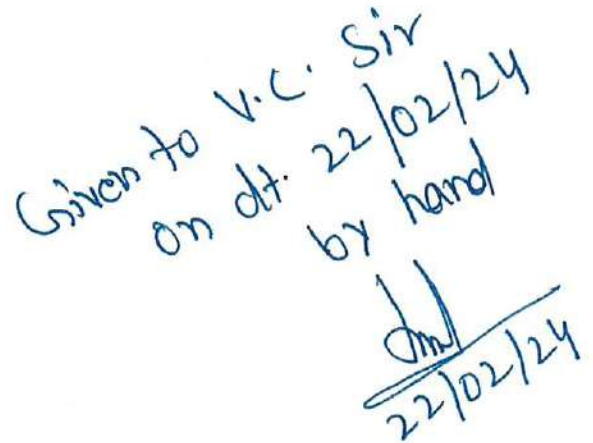 Given to V.C. Sir
on dt. 22/02/24
by hand
22/02/24